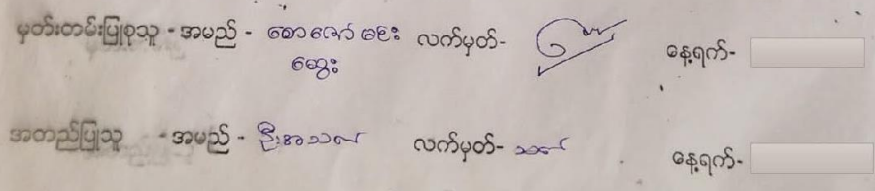 မှတ်းတမ်းပြုစုသူ - အမည် - စောဇော်မင်း လက်မှတ်- နေ့ရက်-
ဆွေး
အတည်ပြုသူ - အမည် - ဦးအသယ် လက်မှတ်- နေ့ရက်-